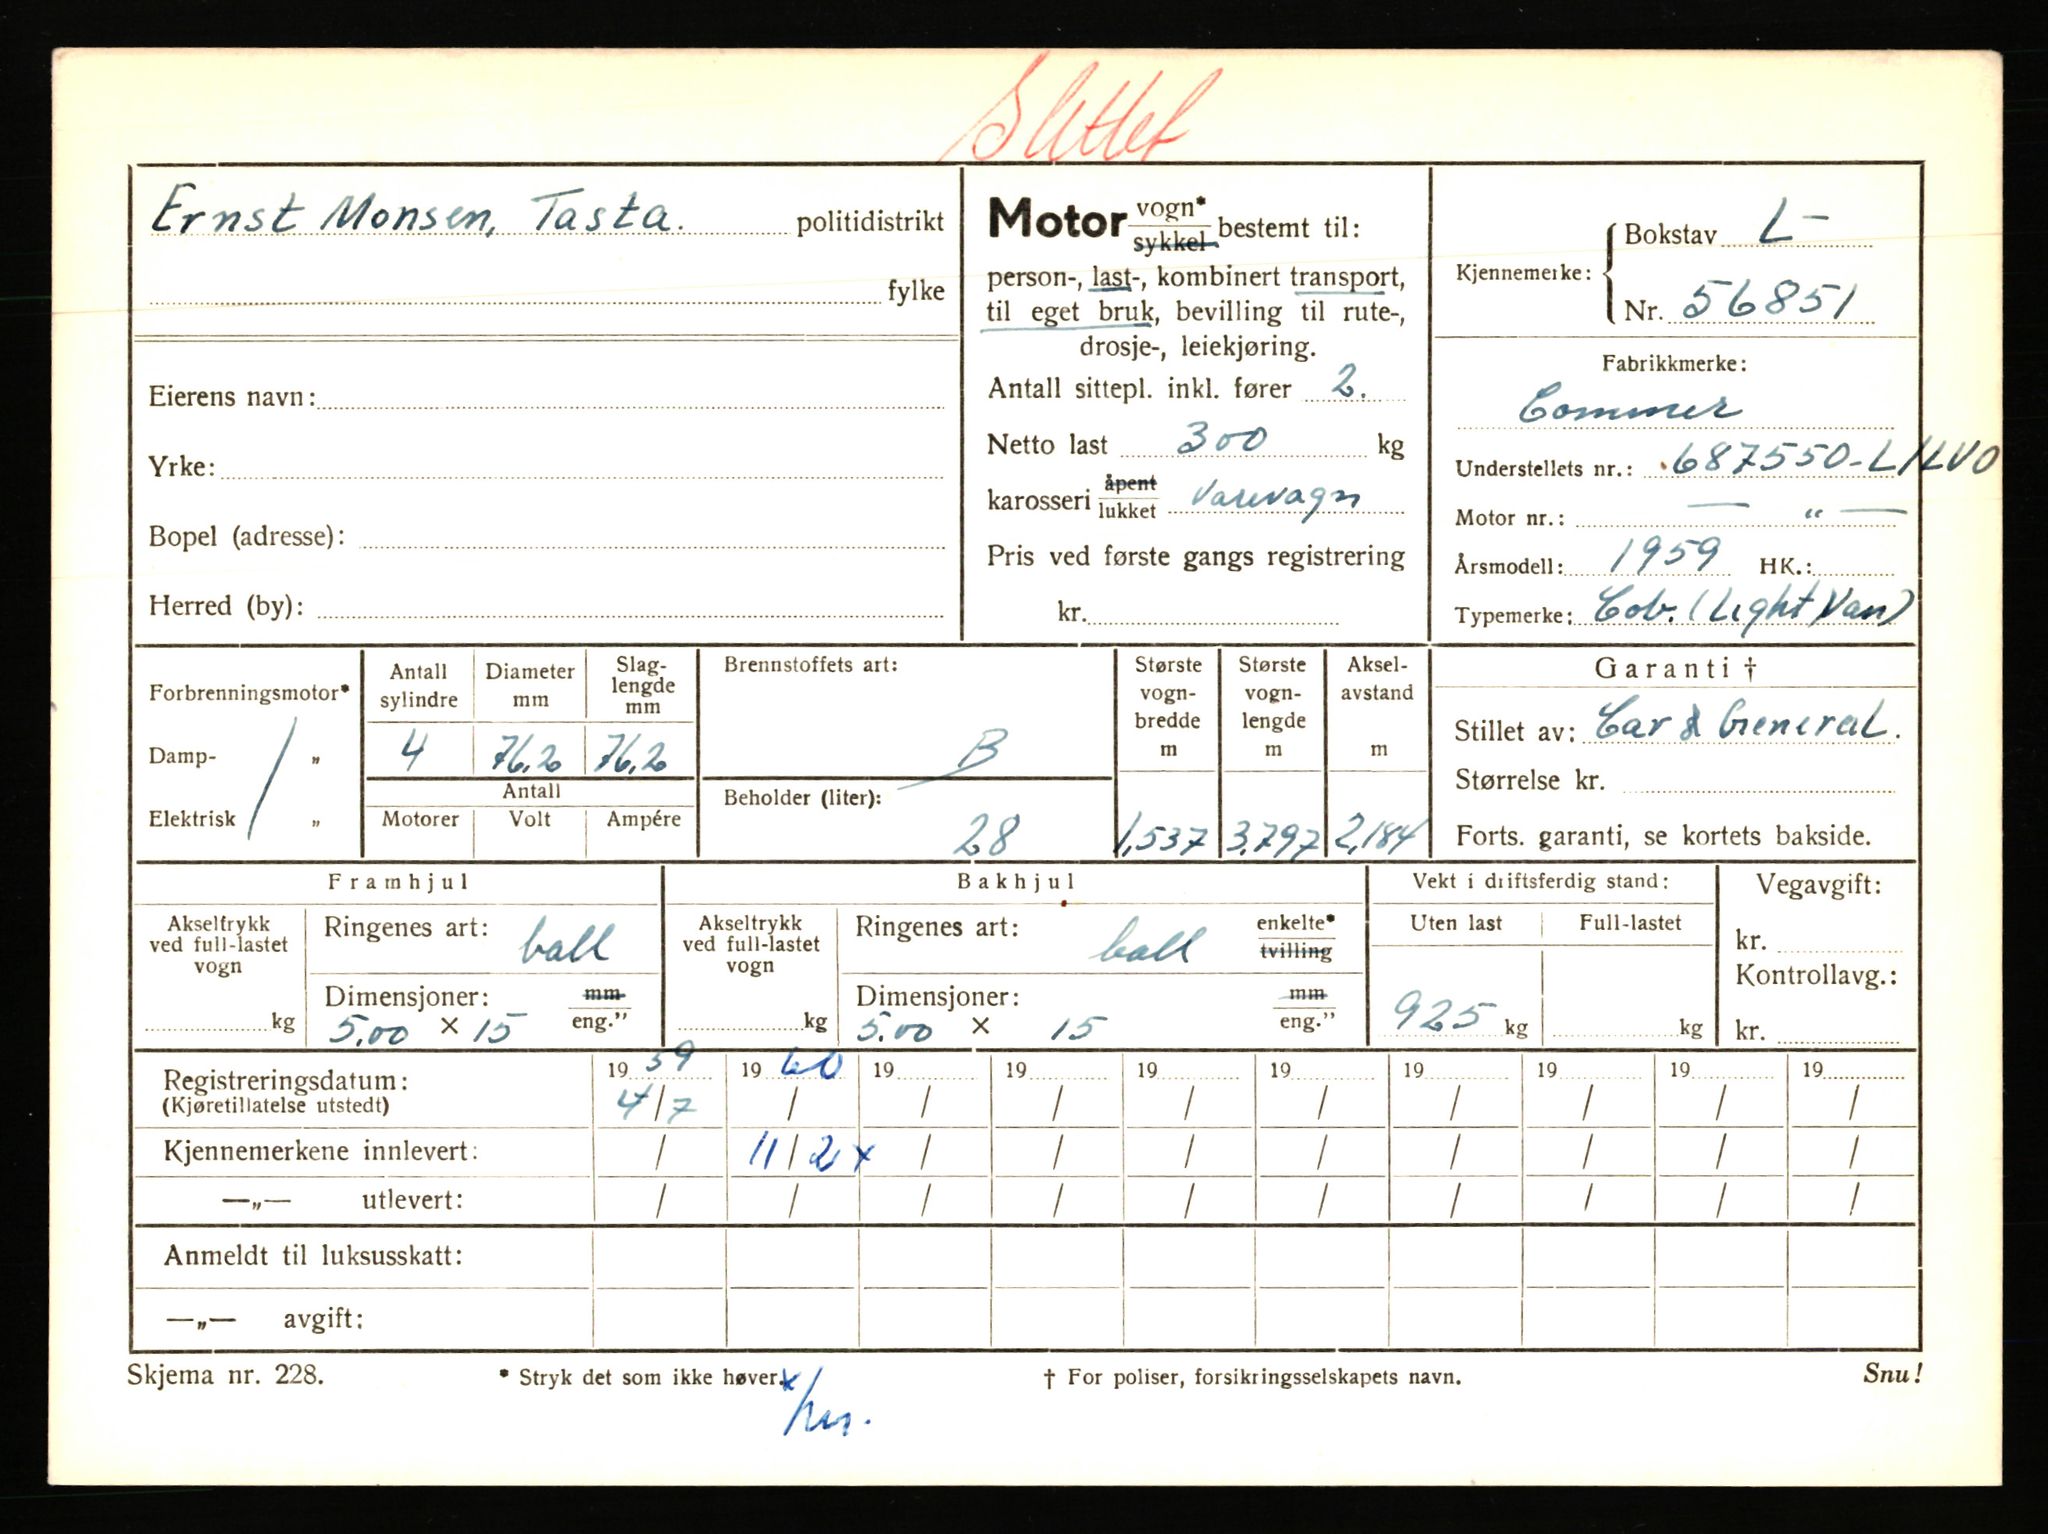 Slettet
Ernst Monsen, Tasta. politidistrikt
fylke
Eierens navn:
Yrke:
Bopel (adresse):
Herred (by):
Motor vogn* sykkel bestemt til:
person-, last-, kombinert transport,
til eget bruk, bevilling til rute-,
drosje-, leiekjøring.
Antall sittepl. inkl. fører 2.
Netto last 300 kg
karosseri åpent lukket varevagn
Pris ved første gangs registrering
kr.
Kjennemerke: Bokstav L-
Nr. 56851
Fabrikkmerke:
Commer
Understellets nr.: 687550-L/LVO
Motor nr.: — " —
Årsmodell: 1959 HK.:
Typemerke: Cob. (Light Van)
Forbrenningsmotor*
Damp- „
Elektrisk „
Antall sylindre
Diameter mm
Slaglengde mm
4 76,2 76,2
Antall
Motorer Volt Ampére
Brennstoffets art:
B
Beholder (liter):
28
Største vognbredde m
1,537
Største vognlengde m
3,797
Akselavstand m
2,184
Garanti †
Stillet av: Car & General.
Størrelse kr.
Forts. garanti, se kortets bakside.
Framhjul
Akseltrykk ved full-lastet vogn
kg
Ringenes art: ball
Dimensjoner: mm eng."
5.00 × 15
Bakhjul
Akseltrykk ved full-lastet vogn
kg
Ringenes art: ball enkelte* tvilling
Dimensjoner: mm eng."
5.00 × 15
Vekt i driftsferdig stand:
Uten last Full-lastet
925 kg kg
Vegavgift:
kr.
Kontrollavg.:
kr.
Registreringsdatum: 19 59 19 60 19 19 19 19 19 19 19 19
(Kjøretillatelse utstedt) 4/7 / / / / / / / / /
Kjennemerkene innlevert: / 11/2 x / / / / / / / /
—„— utlevert: / / / / / / / / / /
Anmeldt til luksusskatt:
—„— avgift:
Skjema nr. 228. * Stryk det som ikke høver. † For poliser, forsikringsselskapets navn. Snu!
x